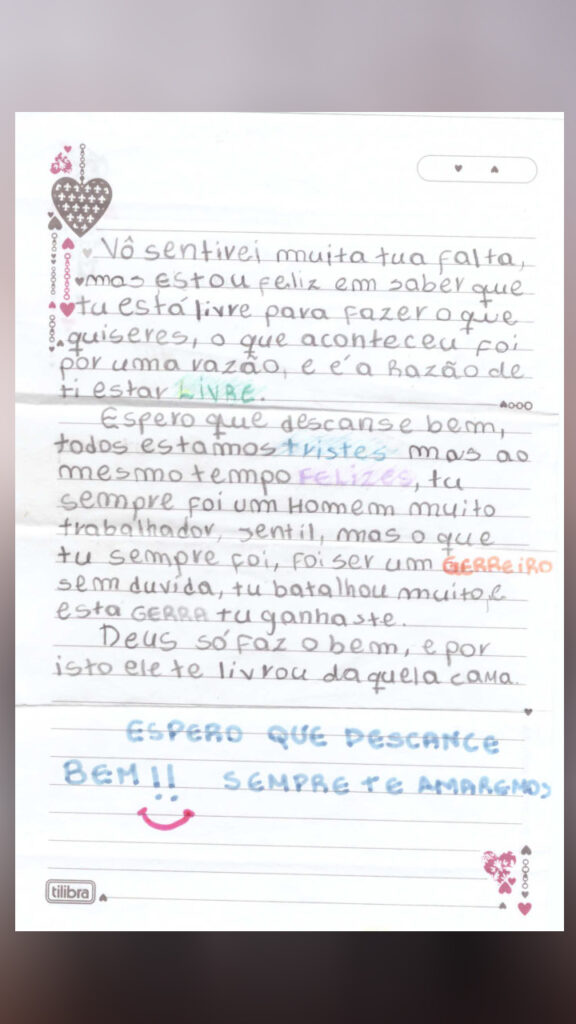 Vô sentirei muita tua falta,
mas estou feliz em saber que
tu está livre para fazer o que
quiseres, o que aconteceu foi
por uma razão, e é a Razão de
ti estar LIVRE.
Espero que descanse bem,
todos estamos tristes mas ao
mesmo tempo FELIZES, tu
sempre foi um Homem muito
trabalhador, gentil, mas o que
tu sempre foi, foi ser um GERREIRO
sem duvida, tu batalhou muito, e
esta GERRA tu ganhaste.
Deus só faz o bem, e por
isto ele te livrou daquela cama.
ESPERO QUE DESCANCE
BEM!! SEMPRE TE AMAREMOS
tilibra